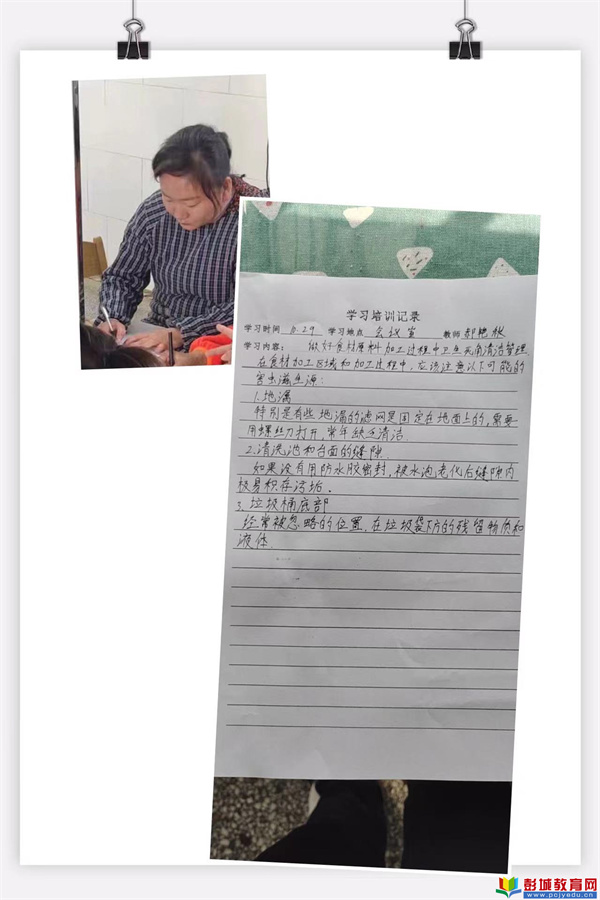 学习培训记录
学习时间 10.29 学习地点 会议室 教师 郝艳秋
学习内容: 做好食材原料加工过程中卫生死角清洁管理
在食材加工区域和加工过程中,应该注意以下可能的
害虫滋生源:
1.地漏
特别是有些地漏的滤网是固定在地面上的,需要
用螺丝刀打开,常年缺乏清洁.
2.清洗池和台面的缝隙.
如果没有用防水胶密封,被水泡老化后缝隙内
极易积存污垢。
3.垃圾桶底部
经常被忽略的位置,在垃圾袋下方的残留物质和
液体
彭城教育网
www.pcjyedu.cn